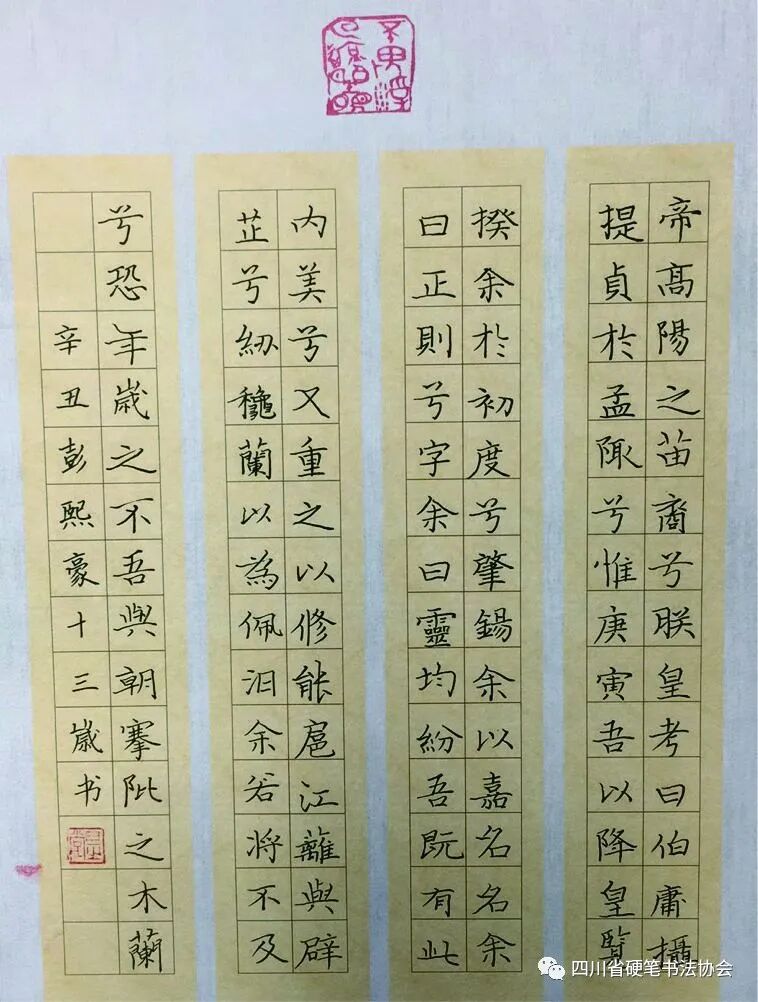 帝高陽之苗裔兮朕皇考曰伯庸攝
提貞於孟陬兮惟庚寅吾以降皇覽
揆余於初度兮肇錫余以嘉名名余
曰正則兮字余曰靈均紛吾既有此
内美兮又重之以修能扈江蘺與辟
芷兮紉穐蘭以為佩汩余若將不及
兮恐年歲之不吾與朝搴阰之木蘭
辛丑彭熙豪十三歲书
四川省硬笔书法协会